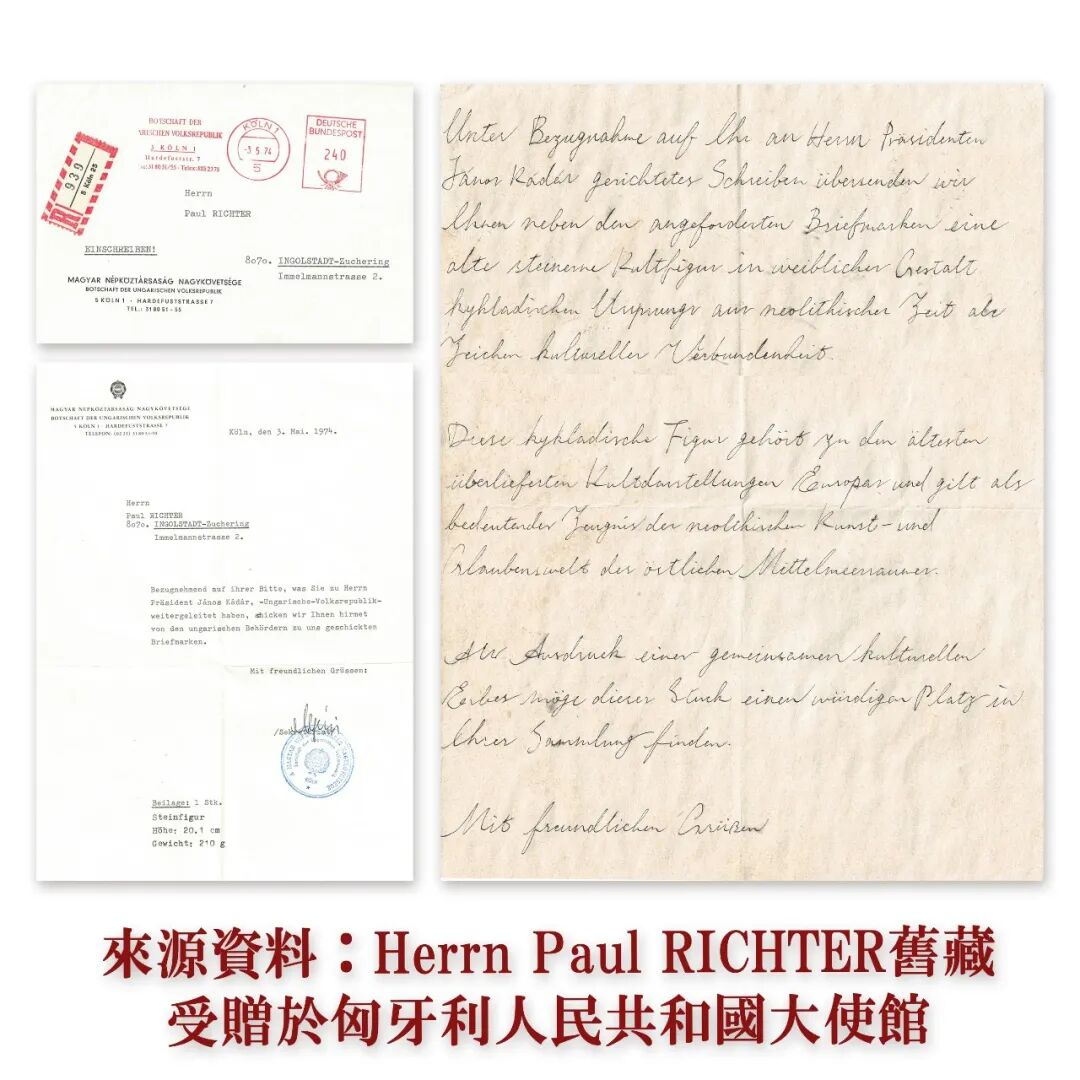 BOTSCHAFT DER
ARISCHEN VOLKSREPUBLIK
5 KÖLN 1
Hardefuststr. 7
KÖLN 1
-3.5.74
5
DEUTSCHE
BUNDESPOST
240
R
939
5 Köln 25
Herrn
Paul RICHTER
EINSCHREIBEN!
8070. INGOLSTADT-Zuchering
Immelmannstrasse 2.
MAGYAR NÉPKÖZTÁRSASÁG NAGYKÖVETSÉGE
BOTSCHAFT DER UNGARISCHEN VOLKSREPUBLIK
5 KÖLN 1 · HARDEFUSTSTRASSE 7
TEL.: 31 80 51 - 55
MAGYAR NÉPKÖZTÁRSASÁG NAGYKÖVETSÉGE
BOTSCHAFT DER UNGARISCHEN VOLKSREPUBLIK
5 KÖLN 1 · HARDEFUSTSTRASSE 7
Köln, den 3. Mai. 1974.
Herrn
Paul RICHTER
8070. INGOLSTADT-Zuchering
Immelmannstrasse 2.
Bezugnehmend auf ihrer Bitte, was Sie zu Herrn
Präsident János Kádár, -Ungarische-Volksrepublik-
weitergeleitet haben, schicken wir Ihnen hirmet
von den ungarischen Behördern zu uns geschickten
Briefmarken.
Mit freundlichen Grüssen:
Beilage: 1 Stk.
Steinfigur
Höhe: 20,1 cm
Gewicht: 210 g
Unter Bezugnahme auf Ihr an Herrn Präsidenten
János Kádár gerichtetes Schreiben übersenden wir
Ihnen neben den angeforderten Briefmarken eine
alte steinerne Kultfigur in weiblicher Gestalt
kykladischen Ursprungs aus neolithischer Zeit als
Zeichen kultureller Verbundenheit.
Diese kykladische Figur gehört zu den ältesten
überlieferten Kultdarstellungen Europas und gilt als
bedeutender Zeugnis der neolithischen Kunst- und
Glaubenswelt des östlichen Mittelmeerraumes.
Als Ausdruck einer gemeinsamen kulturellen
Erbes möge dieses Stuck einen würdigen Platz in
Ihrer Sammlung finden.
Mit freundlichen Grüßen
來源資料：Herrn Paul RICHTER舊藏
受贈於匈牙利人民共和國大使館